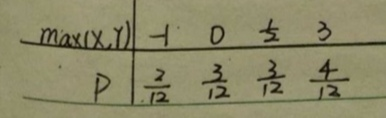 max(X,Y) -1 0 1/2 3
P 2/12 3/12 3/12 4/12